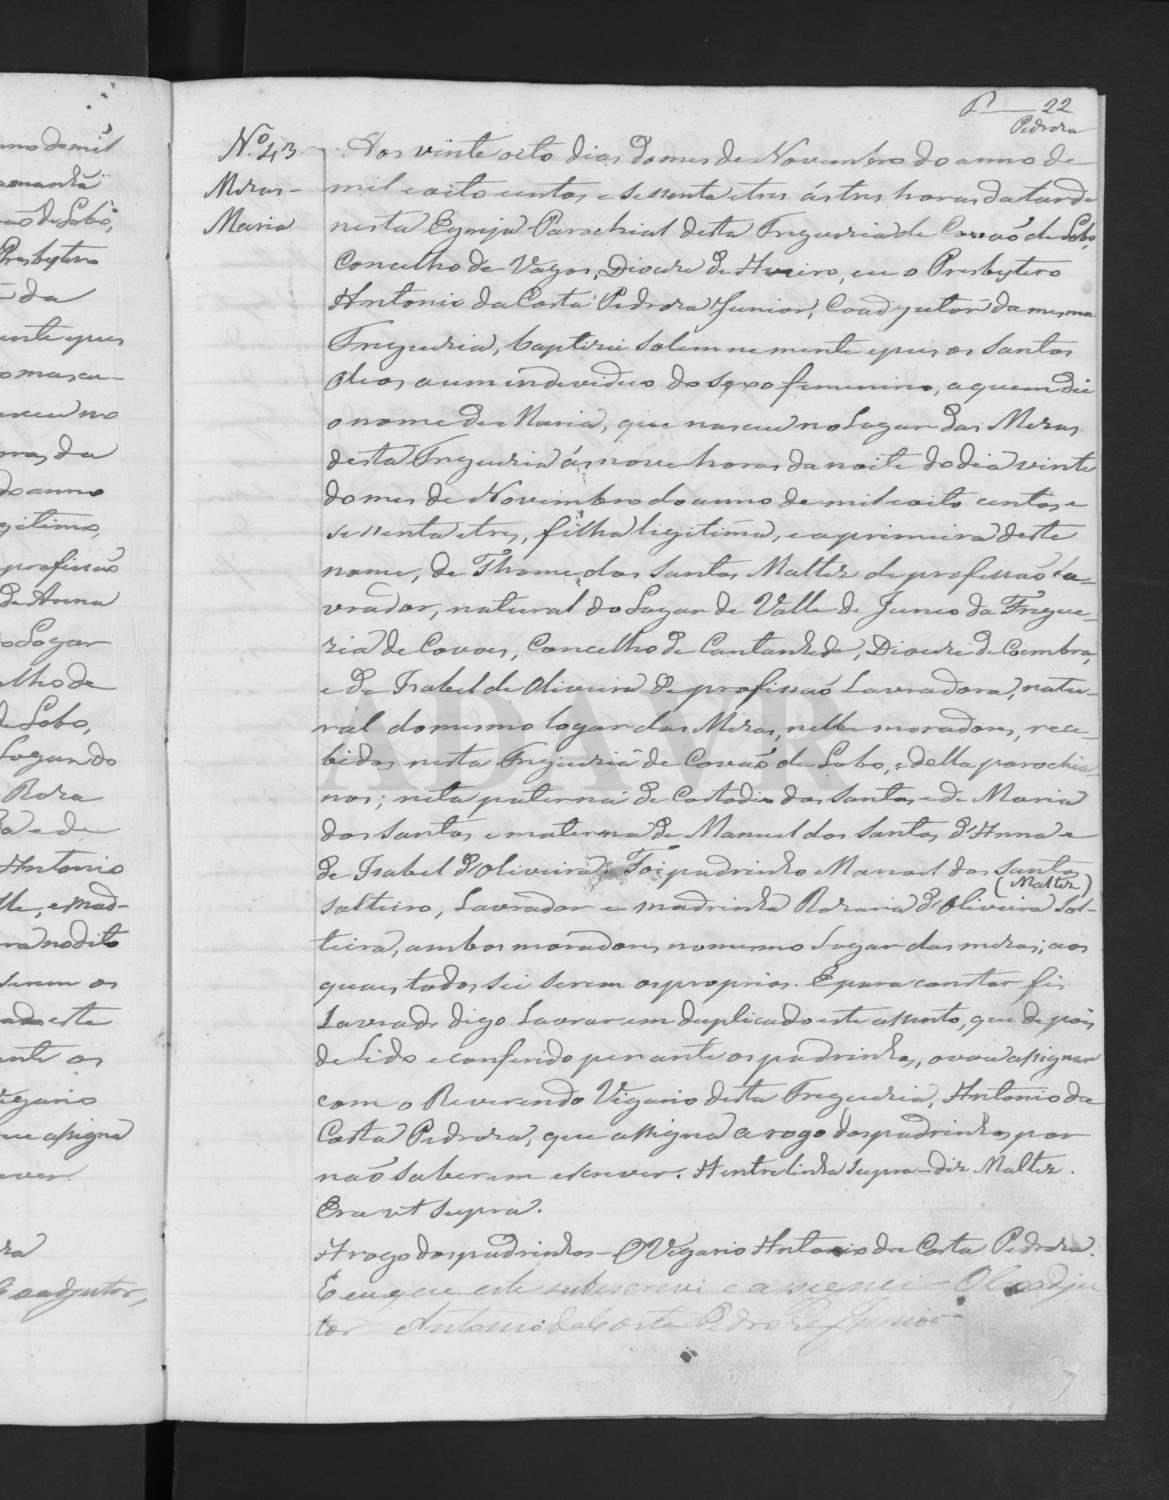 22
Pedroza
Nº 43
Mezas-
Maria
Aos vinte oito dias do mes de Novembro do anno de
mil e oito centos e sessenta e tres ás tres horas da tarde
nesta Egreja Parochial desta Freguezia de Covaõ de Lobo,
Concelho de Vagos, Dioceze de Aveiro, eu o Presbytero
Antonio da Costa Pedroza Junior, Coadjutor da mesma
Freguezia, baptizei solemnemente e pus os santos
Oleos a um individuo do sexo femenino, a quem dei
o nome de Maria, que nasceu no Lugar das Mezas
desta Freguezia ás nove horas da noite do dia vinte
do mes de Novembro do anno de mil e oito centos e
sessenta e tres, filha legitima, e a primeira deste
nome, de Thome dos Santos Malter de profissaõ la-
vrador, natural do Lugar de Valle de Junco da Fregue-
zia de Covoes, Concelho de Cantanhede, Dioceze de Coimbra,
e de Isabel de Oliveira de profissaõ Lavradora, natu-
ral do mesmo logar das Mezas, nelle moradores, rece-
bidos nesta Freguezia de Covaõ de Lobo, e della parochia-
nos; neta paterna de Costodio dos Santos e de Maria
dos Santos e materna de Manuel dos Santos d'Anna e
de Isabel d'Oliveira. Foi padrinho Manoel dos Santos
(Malter)
solteiro, Lavrador e madrinha Rozaria d'Oliveira sol-
teira, ambos moradores no mesmo Lugar das mezas; aos
quaes todos sei serem os proprios. E para constar fiz
Lavrado digo Lavrar em duplicado este assento, que depois
de Lido e conferido perante os padrinhos, o vou assignar
com o Reverendo Vigario desta Freguezia, Antonio da
Costa Pedroza, que assigna a rogo dos padrinhos por
naõ saberem escrever. A entrelinha supra-diz Malter.
Era ut supra.
A rogo dos padrinhos - O Vigario Antonio da Costa Pedroza.
E eu que este subscrevi e assignei - O Coadju
tor Antonio da Costa Pedroza Junior
ADAVR
anno de mil
de Lobo,
Presbytero
da
mascu-
nasceu no
horas da
do anno
legitimo,
profissaõ
de Anna
do Logar
Concelho de
de Lobo,
Logar do
Roza
e de
Antonio
e mad-
no dito
serem os
este
perante os
Vigario
que assigna
escrever
Coadjutor,